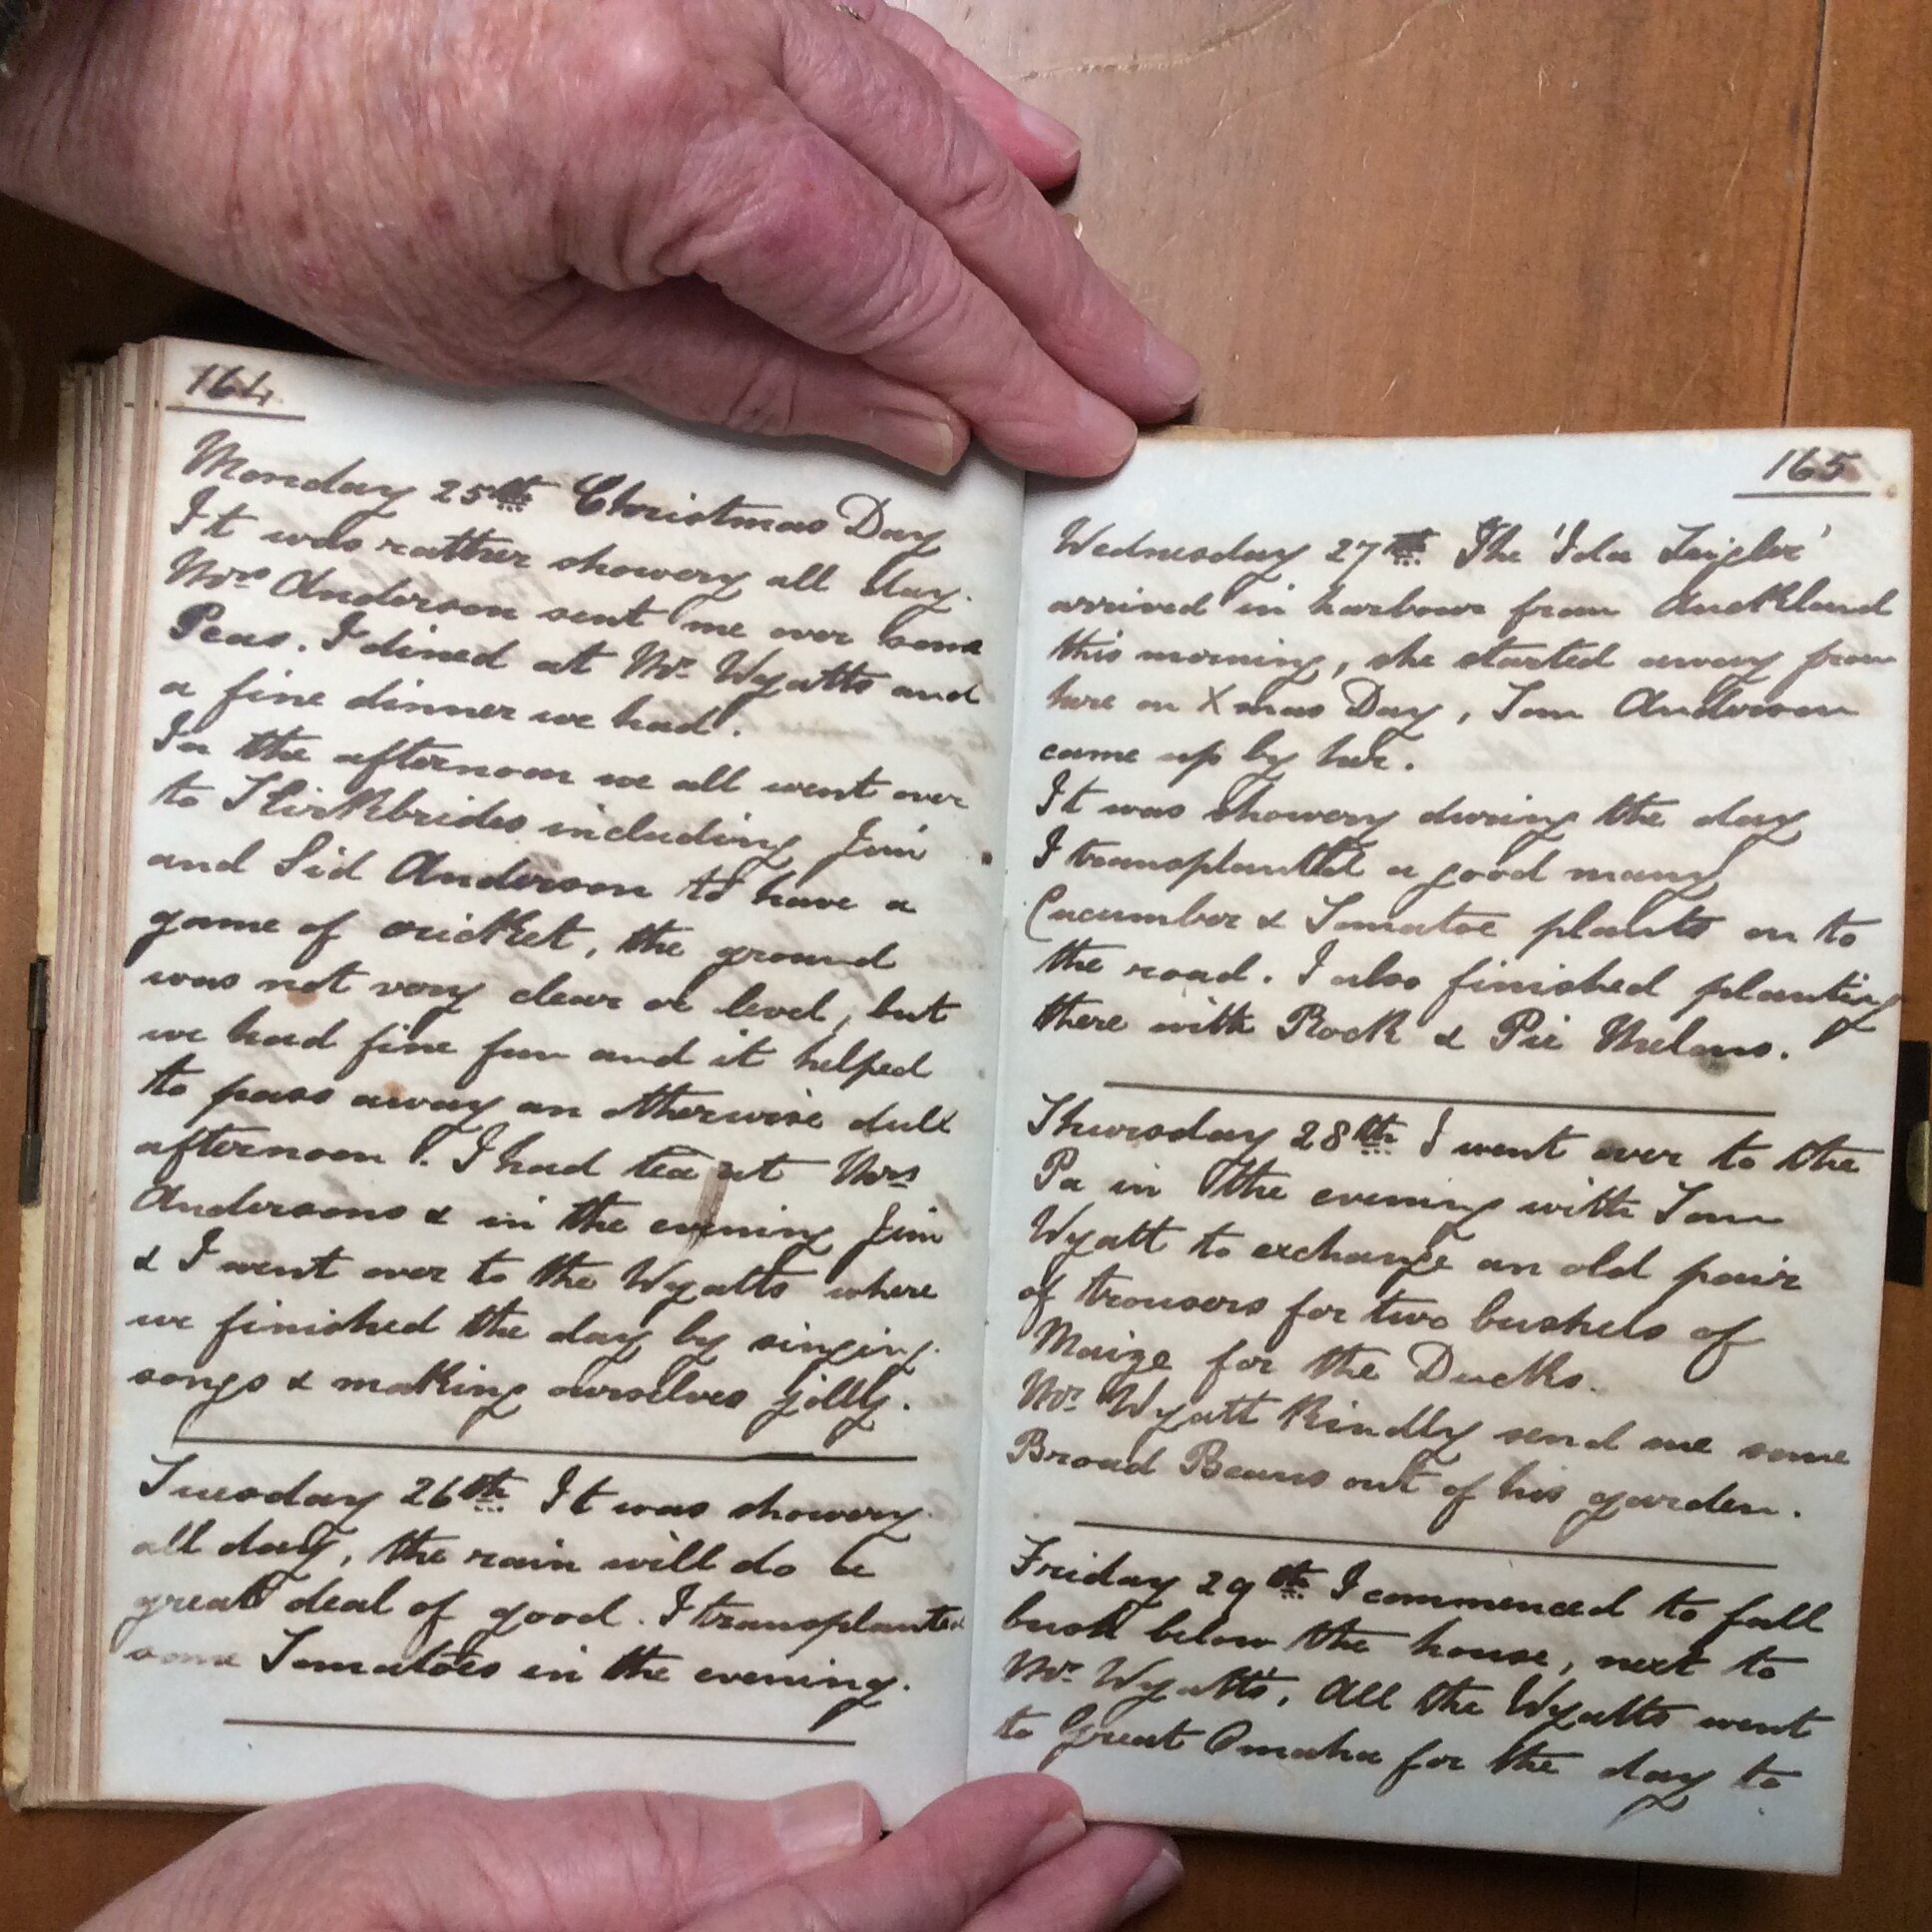 164
Monday 25th Christmas Day
It was rather showery all day.
Mrs Anderson sent me over some
Peas. I dined at Mr. Wyatts and
a fine dinner we had.
In the afternoon we all went over
to Kirkbrides including Jim
and Sid Anderson to have a
game of cricket, the ground
was not very clear or level, but
we had fine fun and it helped
to pass away an otherwise dull
afternoon. I had tea at Mrs
Andersons & in the evening Jim
& I went over to the Wyatts where
we finished the day by singing
songs & making ourselves jolly.
Tuesday 26th It was showery
all day, the rain will do a
great deal of good. I transplanted
some Tomatoes in the evening.
165
Wednesday 27th The 'Ida
arrived in harbour from Auckland
this morning, she started away from
here on Xmas Day, Tom Anderson
came up by her.
It was showery during the day
I transplanted a good many
Cucumber & Tomatoe plants on to
the road. I also finished planting
there with Rock & Pie Melons.
Thursday 28th I went over to the
Pa in the evening with Tom
Wyatt to exchange an old pair
of trousers for two bushels of
Maize for the Ducks.
Mr. Wyatt kindly send me some
Broad Beans out of his garden.
Friday 29th I commenced to fall
bush below the house, next to
Mr. Wyatts'. All the Wyatts went
to Great Omaha for the day to